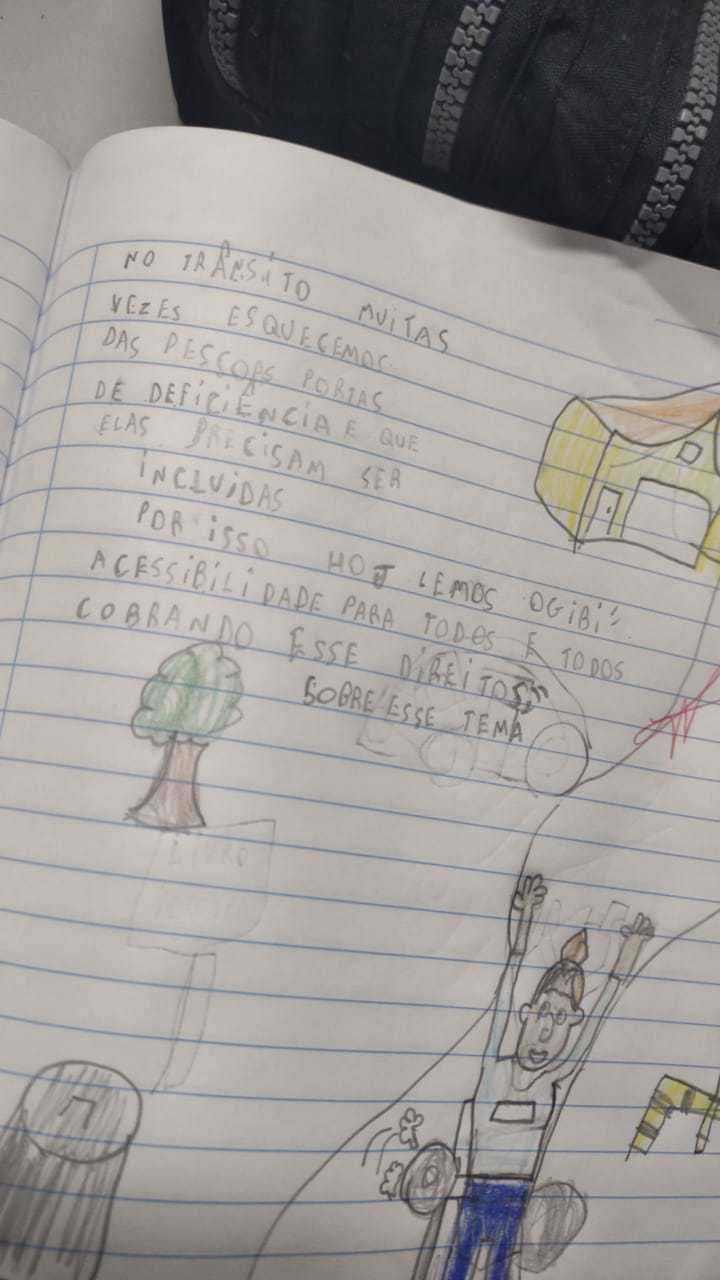 NO TRÂNSITO MUITAS
VEZES ESQUECEMOS
DAS PESSOAS PORTAS
DE DEFICIÊNCIA E QUE
ELAS PRECISAM SER
INCLUIDAS
POR ISSO HOJ LEMOS OGIBI"
ACESSIBILIDADE PARA TODOS E TODOS
COBRANDO ESSE DIREITOS"
SOBRE ESSE TEMA
LIVRO